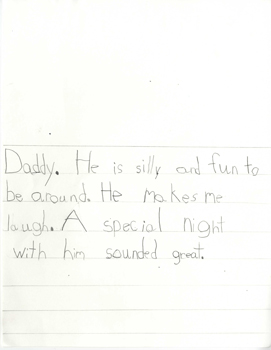 Daddy. He is silly and fun to
be around. He makes me
laugh. A special night
with him sounded great.